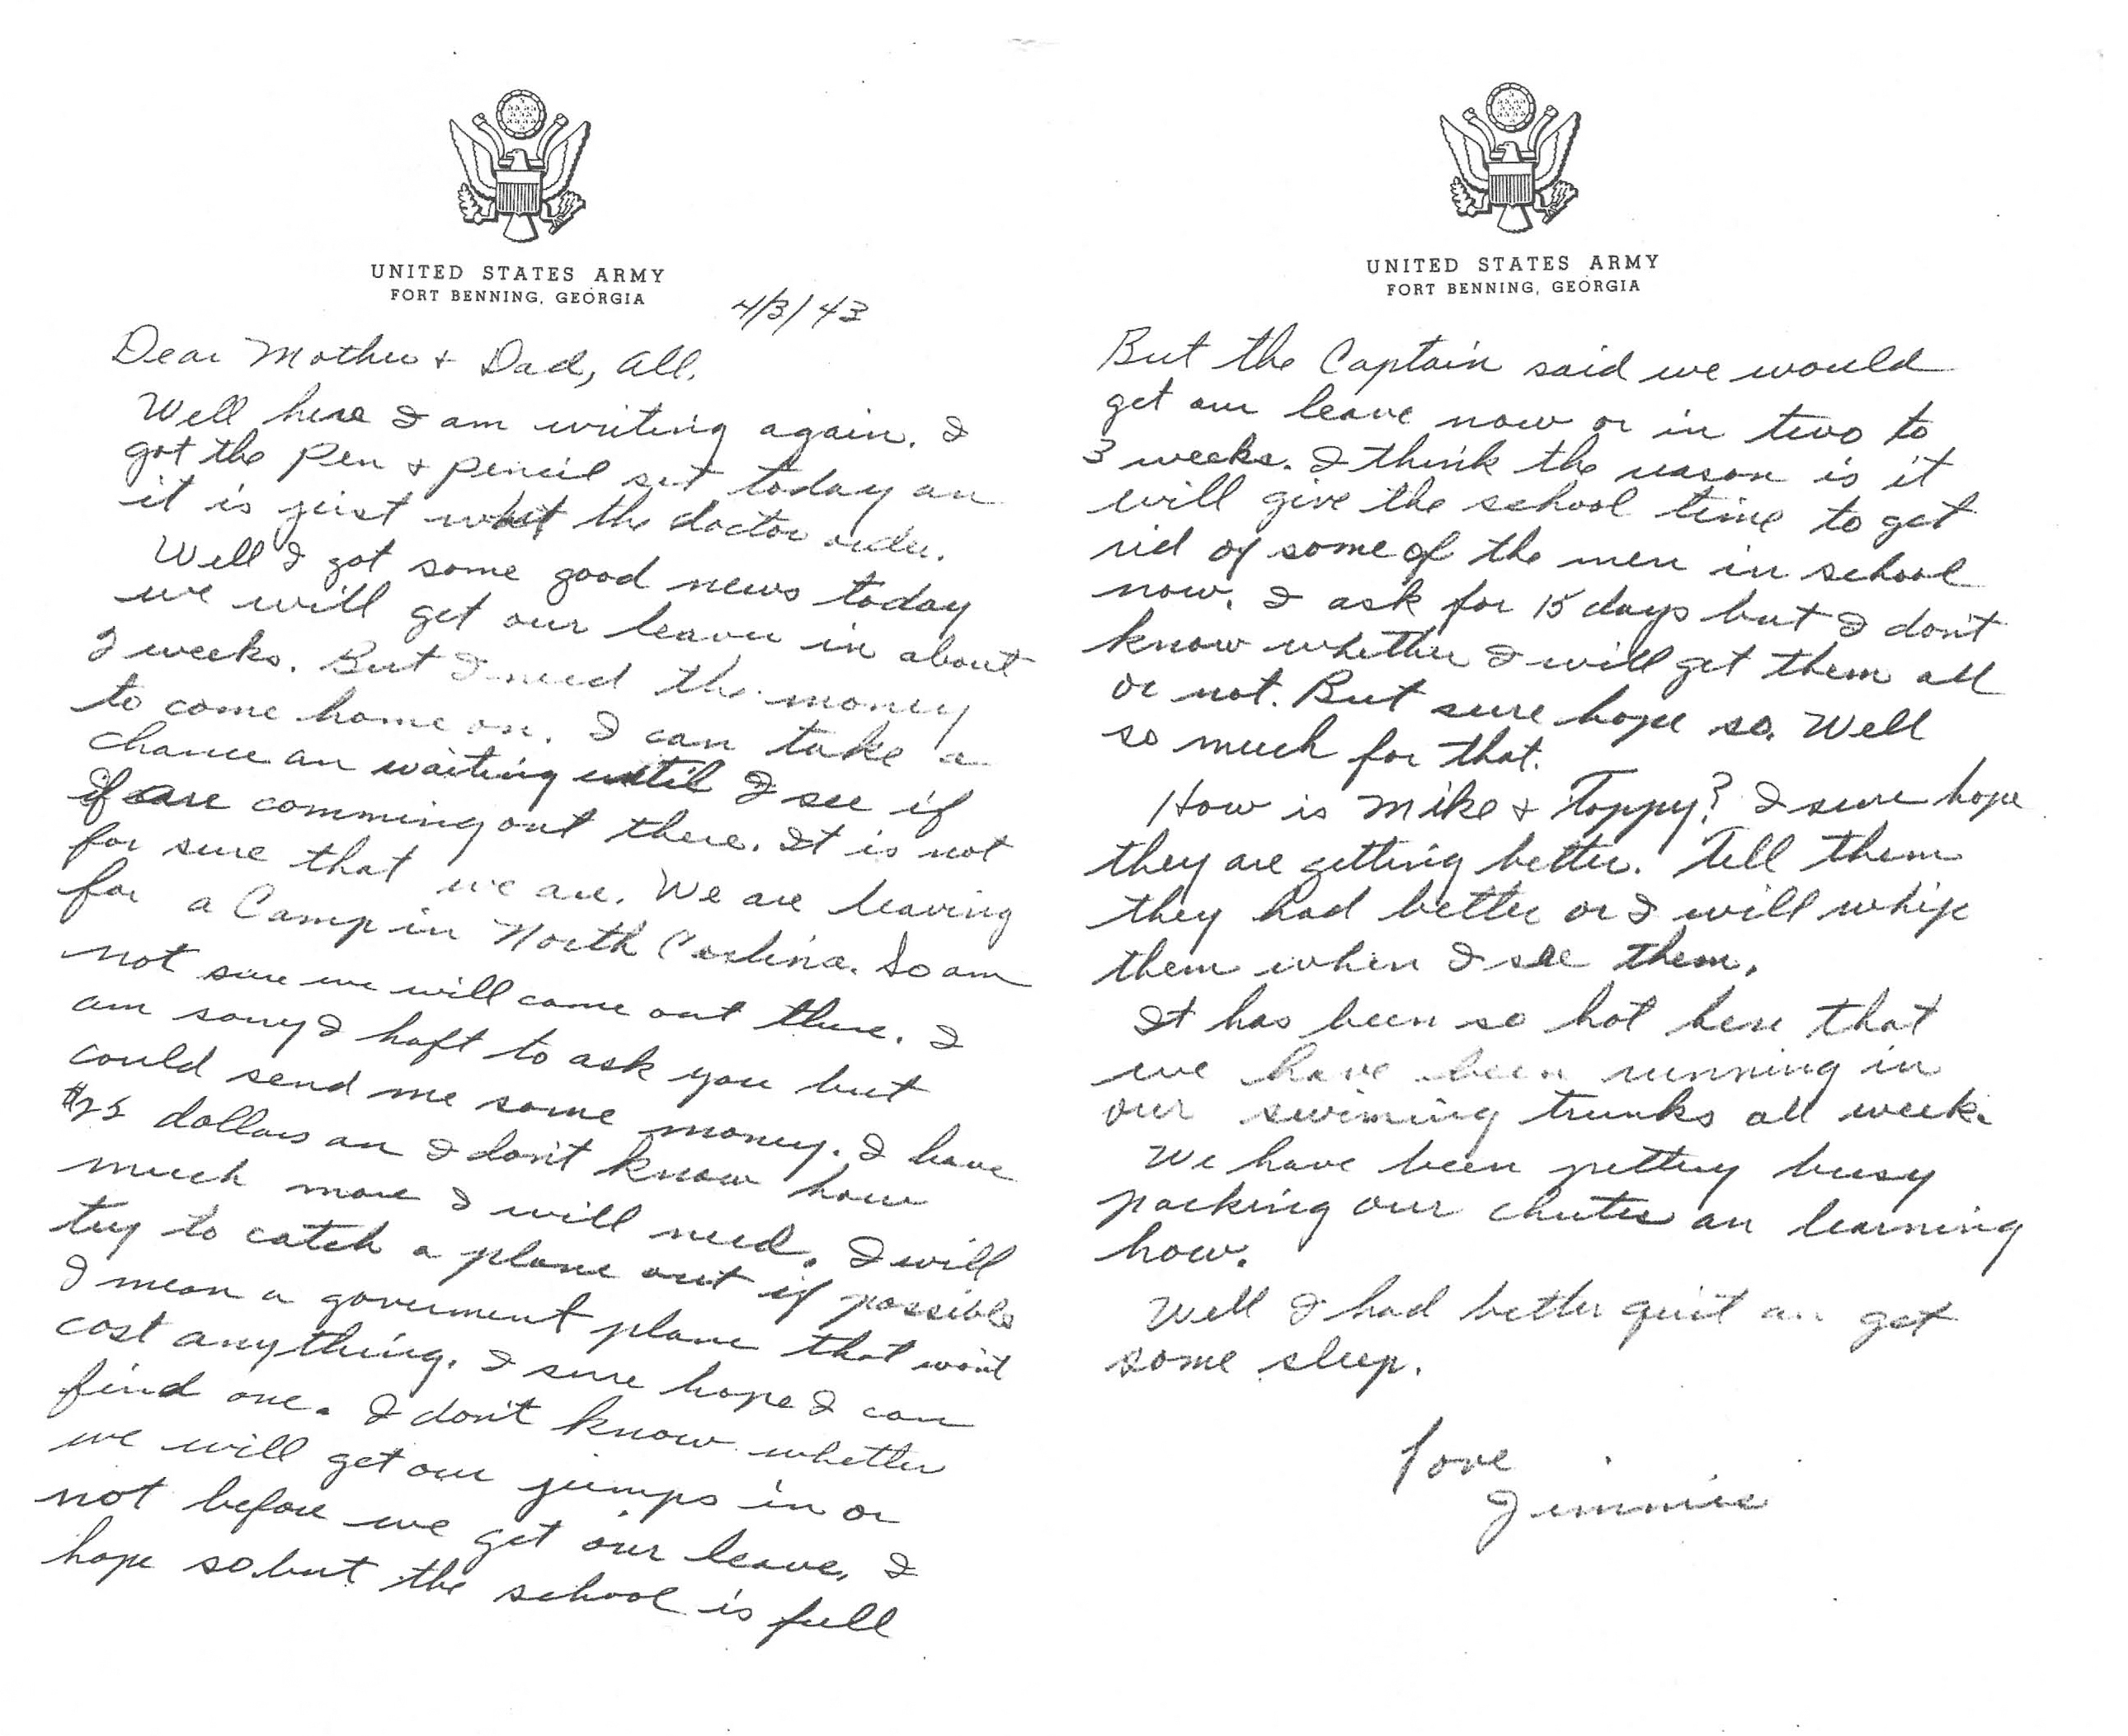 UNITED STATES ARMY
FORT BENNING, GEORGIA
4/3/43
Dear Mother + Dad, All.
Well here I am writing again. I
got the Pen + pencil set today an
it is just what the doctor order.
Well I got some good news today
we will get our leave in about
2 weeks. But I need the money
to come home on. I can take a
chance an waiting until I see if
if are comming out there. It is not
for sure that we are. We are leaving
for a Camp in North Carlina. So am
not sure we will come out there. I
am sorry I haft to ask you but
could send me some money. I have
$25 dollars an I don't know how
much more I will need. I will
try to catch a plane out if possible
I mean a goverment plane that won't
cost anything. I sure hope I can
find one. I don't know whether
we will get our jumps in or
not before we get our leave. I
hope so but the school is full
UNITED STATES ARMY
FORT BENNING, GEORGIA
But the Captain said we would
get our leave now or in two to
3 weeks. I think the reason is it
will give the school time to get
rid of some of the men in school
now. I ask for 15 days but I don't
know whether I will get them all
or not. But sure hope so. Well
so much for that.
How is Mike + Toppy? I sure hope
they are getting better. Tell them
they had better or I will whip
them when I see them.
It has been so hot here that
we have been running in
our swiming trunks all week.
We have been pretty busy
packing our chutes an learning
how.
Well I had better quit an get
some sleep.
Love
Jimmie